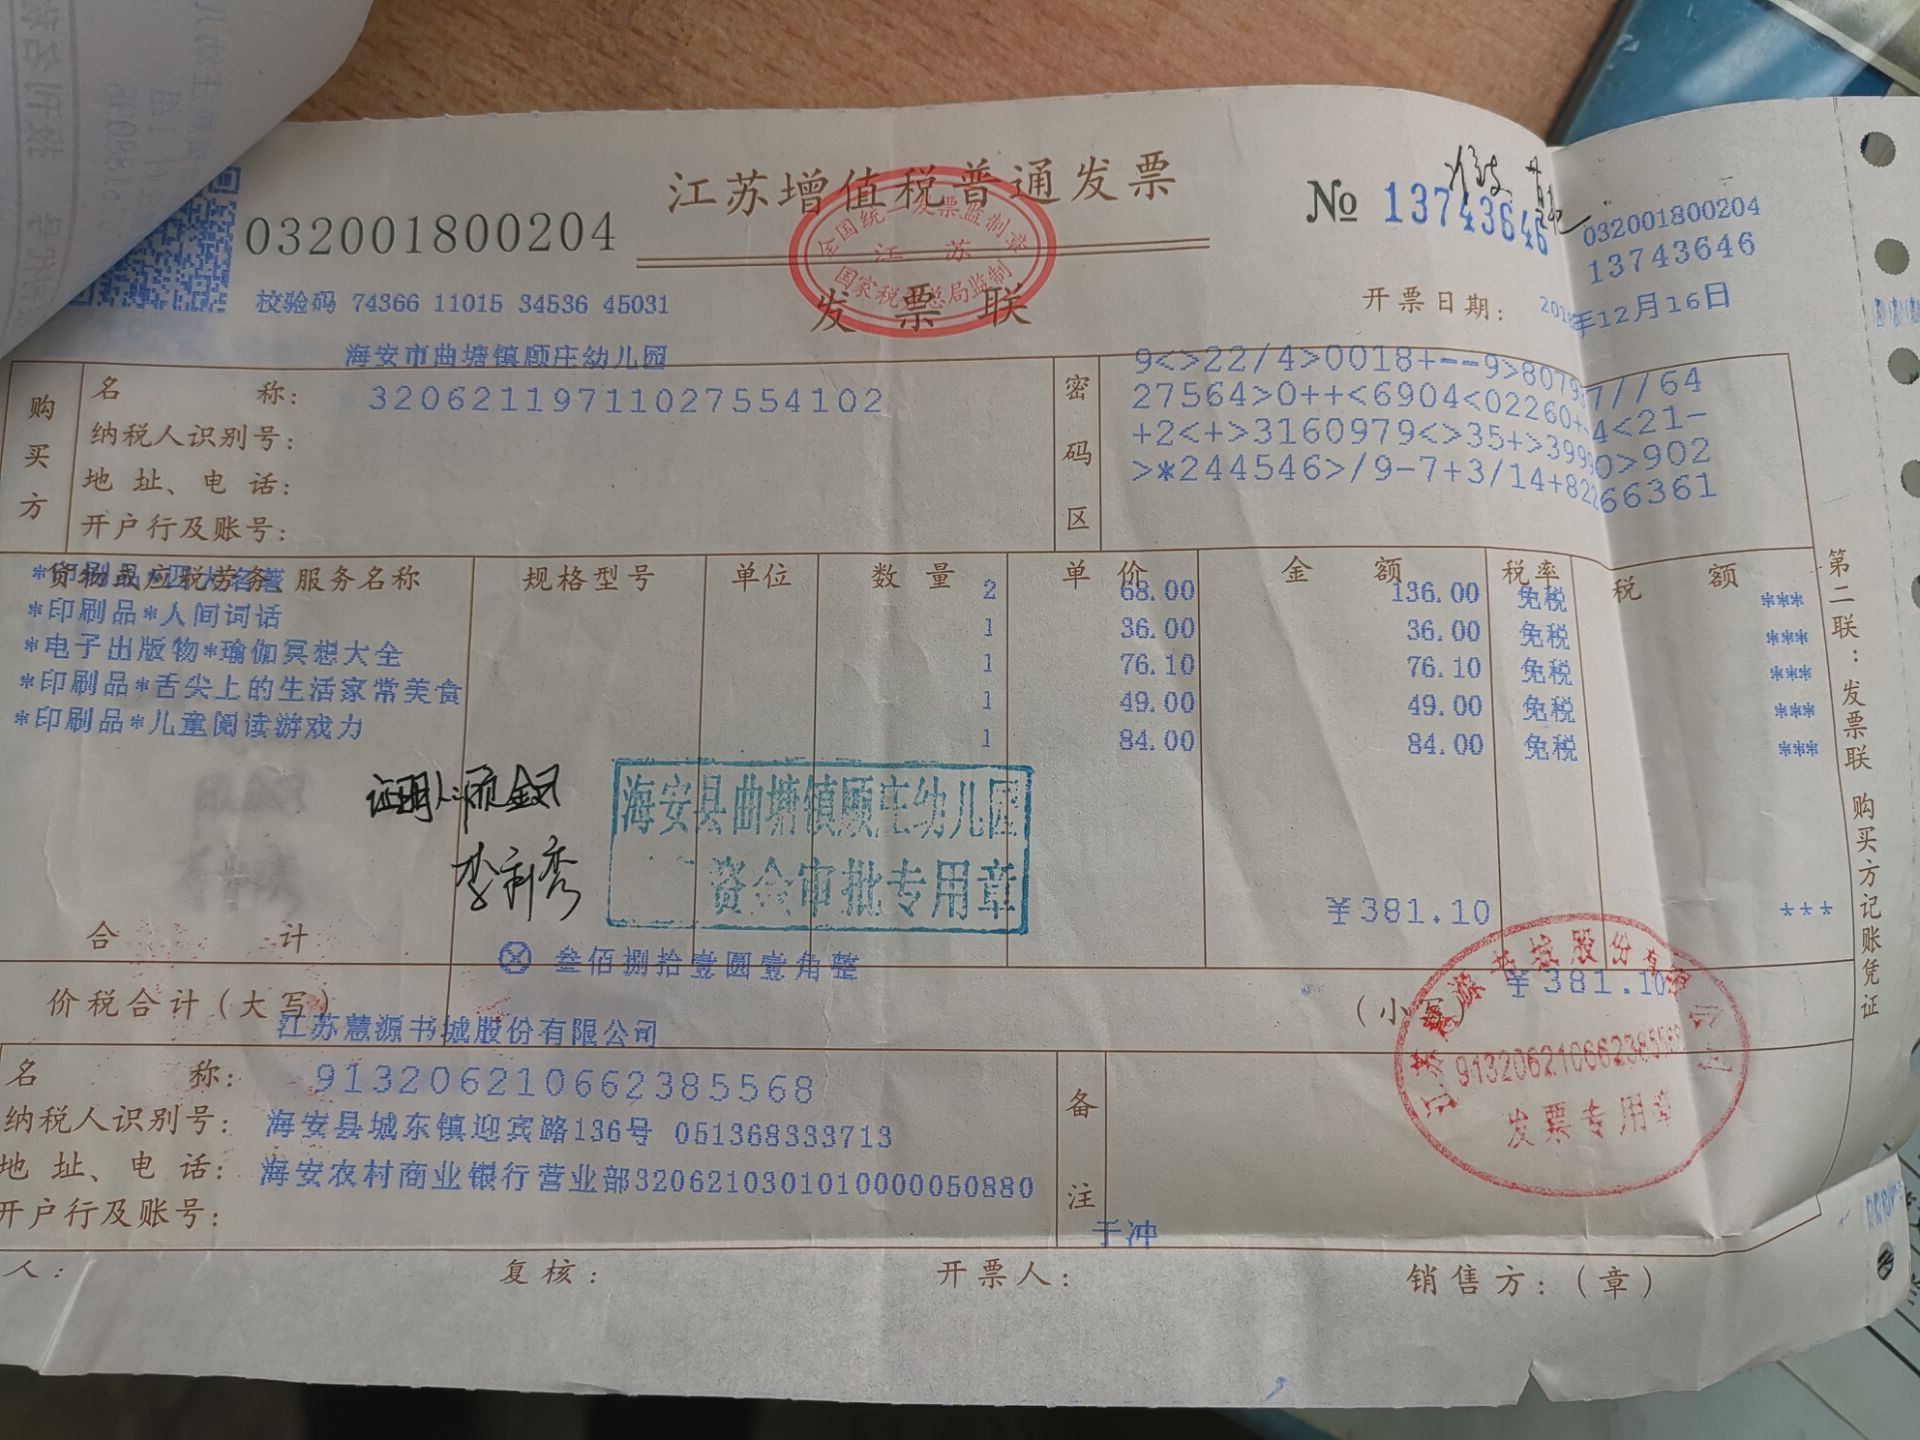 江苏增值税普通发票
032001800204
№ 13743646
032001800204
13743646
全国统一发票监制章
江苏
国家税务总局监制
发票联
校验码 74366 11015 34536 45031
开票日期：
年12月16日
购买方
名称：
海安市曲塘镇顾庄幼儿园
纳税人识别号：
32062119711027554102
地址、电话：
开户行及账号：
密码区
9<>22/4>0018+--9>8079
7//64
27564>0++<6904<02260+
4<21-
+2<+>3160979<>35+>3999
0>902
>*244546>/9-7+3/14+822
66361
货物或应税劳务、服务名称 规格型号 单位 数量 单价 金额 税率 税额
2 68.00 136.00 免税 ***
*印刷品*人间词话 1 36.00 36.00 免税 ***
*电子出版物*瑜伽冥想大全 1 76.10 76.10 免税 ***
*印刷品*舌尖上的生活家常美食 1 49.00 49.00 免税 ***
*印刷品*儿童阅读游戏力 1 84.00 84.00 免税 ***
证明人：顾金凤
海安县曲塘镇顾庄幼儿园
资金审批专用章
合计 ¥381.10 ***
价税合计（大写） ⊗ 叁佰捌拾壹圆壹角整 （小写） ¥381.10
名称：
江苏慧源书城股份有限公司
纳税人识别号：
913206210662385568
地址、电话：
海安县城东镇迎宾路136号 051368333713
开户行及账号：
海安农村商业银行营业部3206210301010000050880
备注
江苏慧源书城股份有限公司
913206210662385568
发票专用章
人：
复核：
开票人：
于冲
销售方：（章）
第二联：发票联 购买方记账凭证